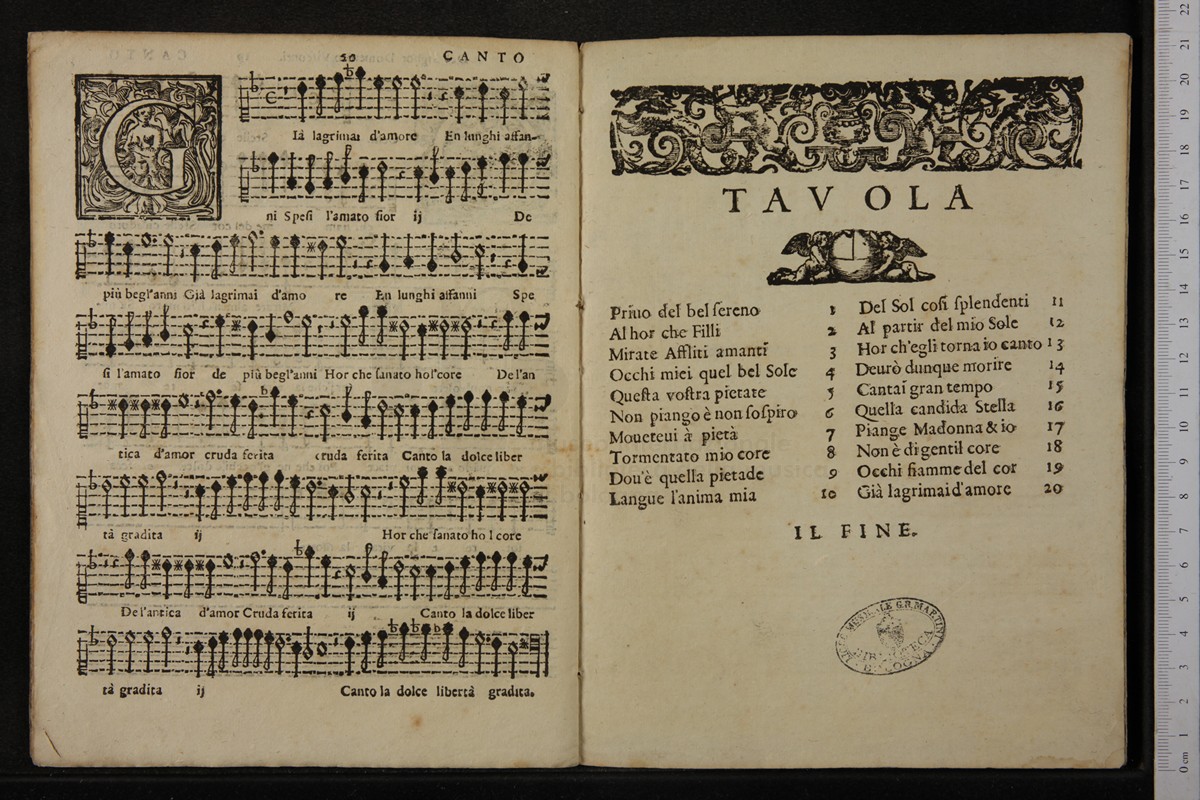 20 CANTO
G
Ià lagrimai d'amore En lunghi affan-
ni Spesi l'amato fior ij De
più begl'anni Già lagrimai d'amo re En lunghi affanni Spe
si l'amato fior de più begl'anni Hor che sanato hol'core Del'an
tica d'amor cruda ferita cruda ferita Canto la dolce liber
tà gradita ij Hor che sanato ho l core
Del'antica d'amor Cruda ferita ij Canto la dolce liber
tà gradita ij Canto la dolce libertà gradita.
TAVOLA
Priuo del bel sereno 1
Al hor che Filli 2
Mirate Affliti amanti 3
Occhi miei quel bel Sole 4
Questa vostra pietate 5
Non piango è non sospiro 6
Moueteui à pietà 7
Tormentato mio core 8
Dou'è quella pietade 9
Langue l'anima mia 10
Del Sol così splendenti 11
Al partir del mio Sole 12
Hor ch'egli torna io canto 13
Deurò dunque morire 14
Cantai gran tempo 15
Quella candida Stella 16
Piange Madonna & io 17
Non è di gentil core 18
Occhi fiamme del cor 19
Già lagrimai d'amore 20
IL FINE.
LICEO MUSICALE G.B. MARTINI
BIBLIOTECA
BOLOGNA
22
21
20
19
18
17
16
15
14
13
12
11
10
9
8
7
6
5
4
3
2
1
0 cm